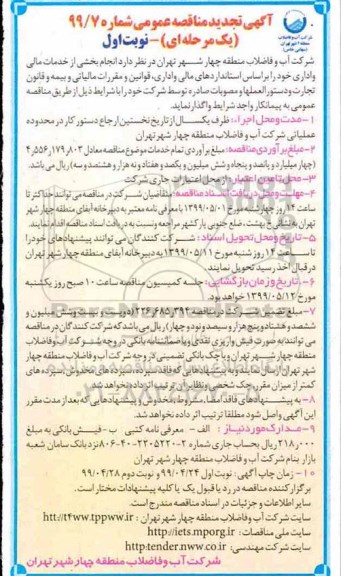 آگهی تجدید مناقصه عمومی شماره ۹۹/۷
(یک مرحله ای) - نوبت اول
شرکت آب و فاضلاب منطقه چهار شهر تهران در نظر دارد انجام بخشی از خدمات مالی
واداری خود را بر اساس استانداردهای مالی و اداری، قوانین و مقررات مالیاتی و بیمه و قانون
تجارت و دستورالعملها و مصوبات صادره توسط شرکت خود را با شرایط ذیل از طریق مناقصه
عمومی به پیمانکار واجد شرایط واگذار نماید.
۱- مدت و محل اجراء: ظرف یکسال از تاریخ نخستین ارجاع دستور کار در محدوده
عملیاتی شرکت آب و فاضلاب منطقه چهار شهر تهران
۲- مبلغ برآوردی مناقصه: مبلغ برآوردی تمام خدمات موضوع مناقصه معادل ۴٫۵۵۶٫۱۷۹٫۸۰۳
(چهار میلیارد و پانصد و پنجاه و شش میلیون و یکصد و هفتاد و نه هزار و هشتصد و سه) ریال می باشد.
۳- محل تامین اعتبار: از محل اعتبارات جاری شرکت
۴- مهلت و محل دریافت اسناد مناقصه: متقاضیان شرکت در مناقصه می توانند حداکثر تا
ساعت ۱۴ روز چهارشنبه مورخ ۱۳۹۹/۰۵/۰۱ با معرفی نامه معتبر به دبیرخانه آبفای منطقه چهار شهر
تهران به نشانی خ بهشت، ضلع جنوبی پارکشهر مراجعه و نسبت به دریافت اسناد مناقصه اقدام نمایند.
۵- تاریخ و محل تحویل اسناد: شرکت کنندگان می توانند پیشنهادهای خود را
تا ساعت ۱۴ روز شنبه مورخ ۱۳۹۹/۰۵/۱۱ به دبیرخانه آبفای منطقه چهار شهر تهران
در قبال اخذ رسید تحویل نمایند.
۶- تاریخ و زمان بازگشایی: جلسه کمیسیون مناقصه ساعت ۱۰ صبح روز یکشنبه
مورخ ۱۳۹۹/۰۵/۱۲ خواهد بود.
۷- مبلغ تضمین شرکت در مناقصه ۲۳۶٫۶۸۵٫۳۹۲ (دویست و سی و شش میلیون و
ششصد و هشتاد و پنج هزار و سیصد و نود و چهار) ریال می باشد که شرکت کنندگان در مناقصه
می توانند به صورت فیش واریزی نقدی و یا ضمانتنامه بانکی در وجه شرکت آب و فاضلاب
منطقه چهار شهر تهران و یا چک بانکی تضمینی در وجه شرکت آب و فاضلاب منطقه چهار
شهر تهران ارسال نمایند و به پیشنهادهایی که فاقد سپرده، سپرده های مخدوش، سپرده های
کمتر از میزان مقرر، چک شخصی و نظایر آن ترتیب اثر داده نخواهد شد.
۸- به پیشنهادهای فاقد امضا، مشروط، مخدوش و پیشنهادهایی که بعد از مدت مقرر
این آگهی واصل شود مطلقا ترتیب اثر داده نخواهد شد.
۹- مدارک مورد نیاز: الف - معرفی نامه کتبی ب - فیش بانکی به مبلغ
۲۱۸٫۰۰۰ ریال بحساب جاری شماره ۲-۲۲۰۵۲۲۰-۴۰-۸۰۶ نزد بانک سامان شعبه
بازار بنام شرکت آب و فاضلاب منطقه چهار شهر تهران
۱۰- زمان چاپ آگهی: نوبت اول ۹۹/۰۴/۲۴ و نوبت دوم ۹۹/۰۴/۲۸
برگزار کننده مناقصه در رد یا قبول یک یا کلیه پیشنهادات مختار است.
سایر اطلاعات و جزئیات در اسناد مناقصه مندرج است.
سایت شرکت آب و فاضلاب منطقه چهار شهر تهران : htt://t4ww.tppww.ir
سایت ملی مناقصات: http://iets.mporg.ir
سایت شرکت مهندسی: http:tender.nww.co.ir
شرکت آب و فاضلاب منطقه چهار شهر تهران